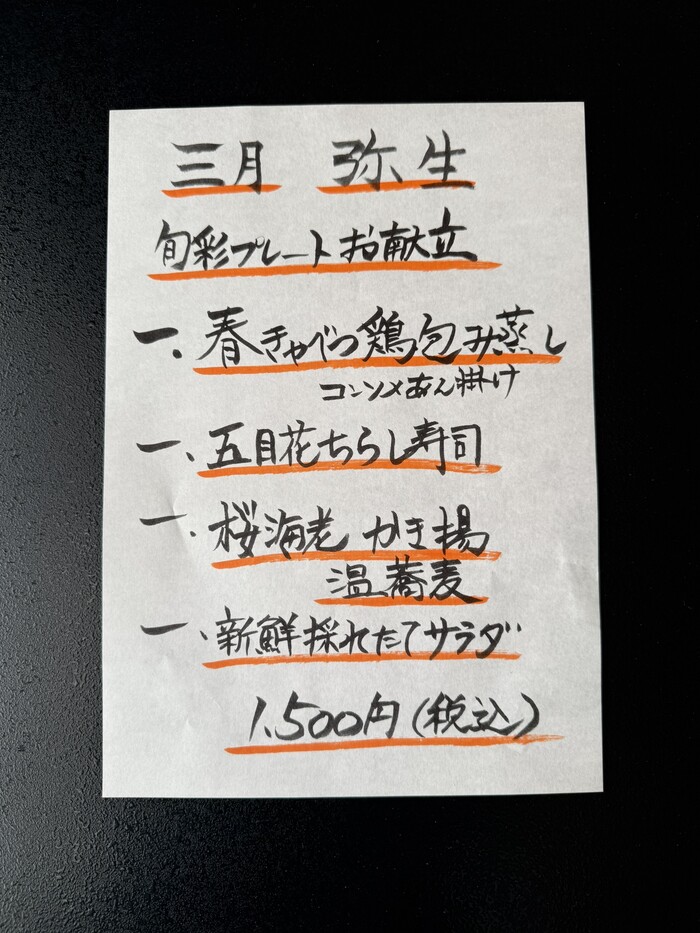 三月 弥生
旬彩プレートお献立
一、春きゃべつ鶏包み蒸し
コンソメあん掛け
一、五目花ちらし寿司
一、桜海老 かき揚
温蕎麦
一、新鮮採れたてサラダ
1,500円(税込)